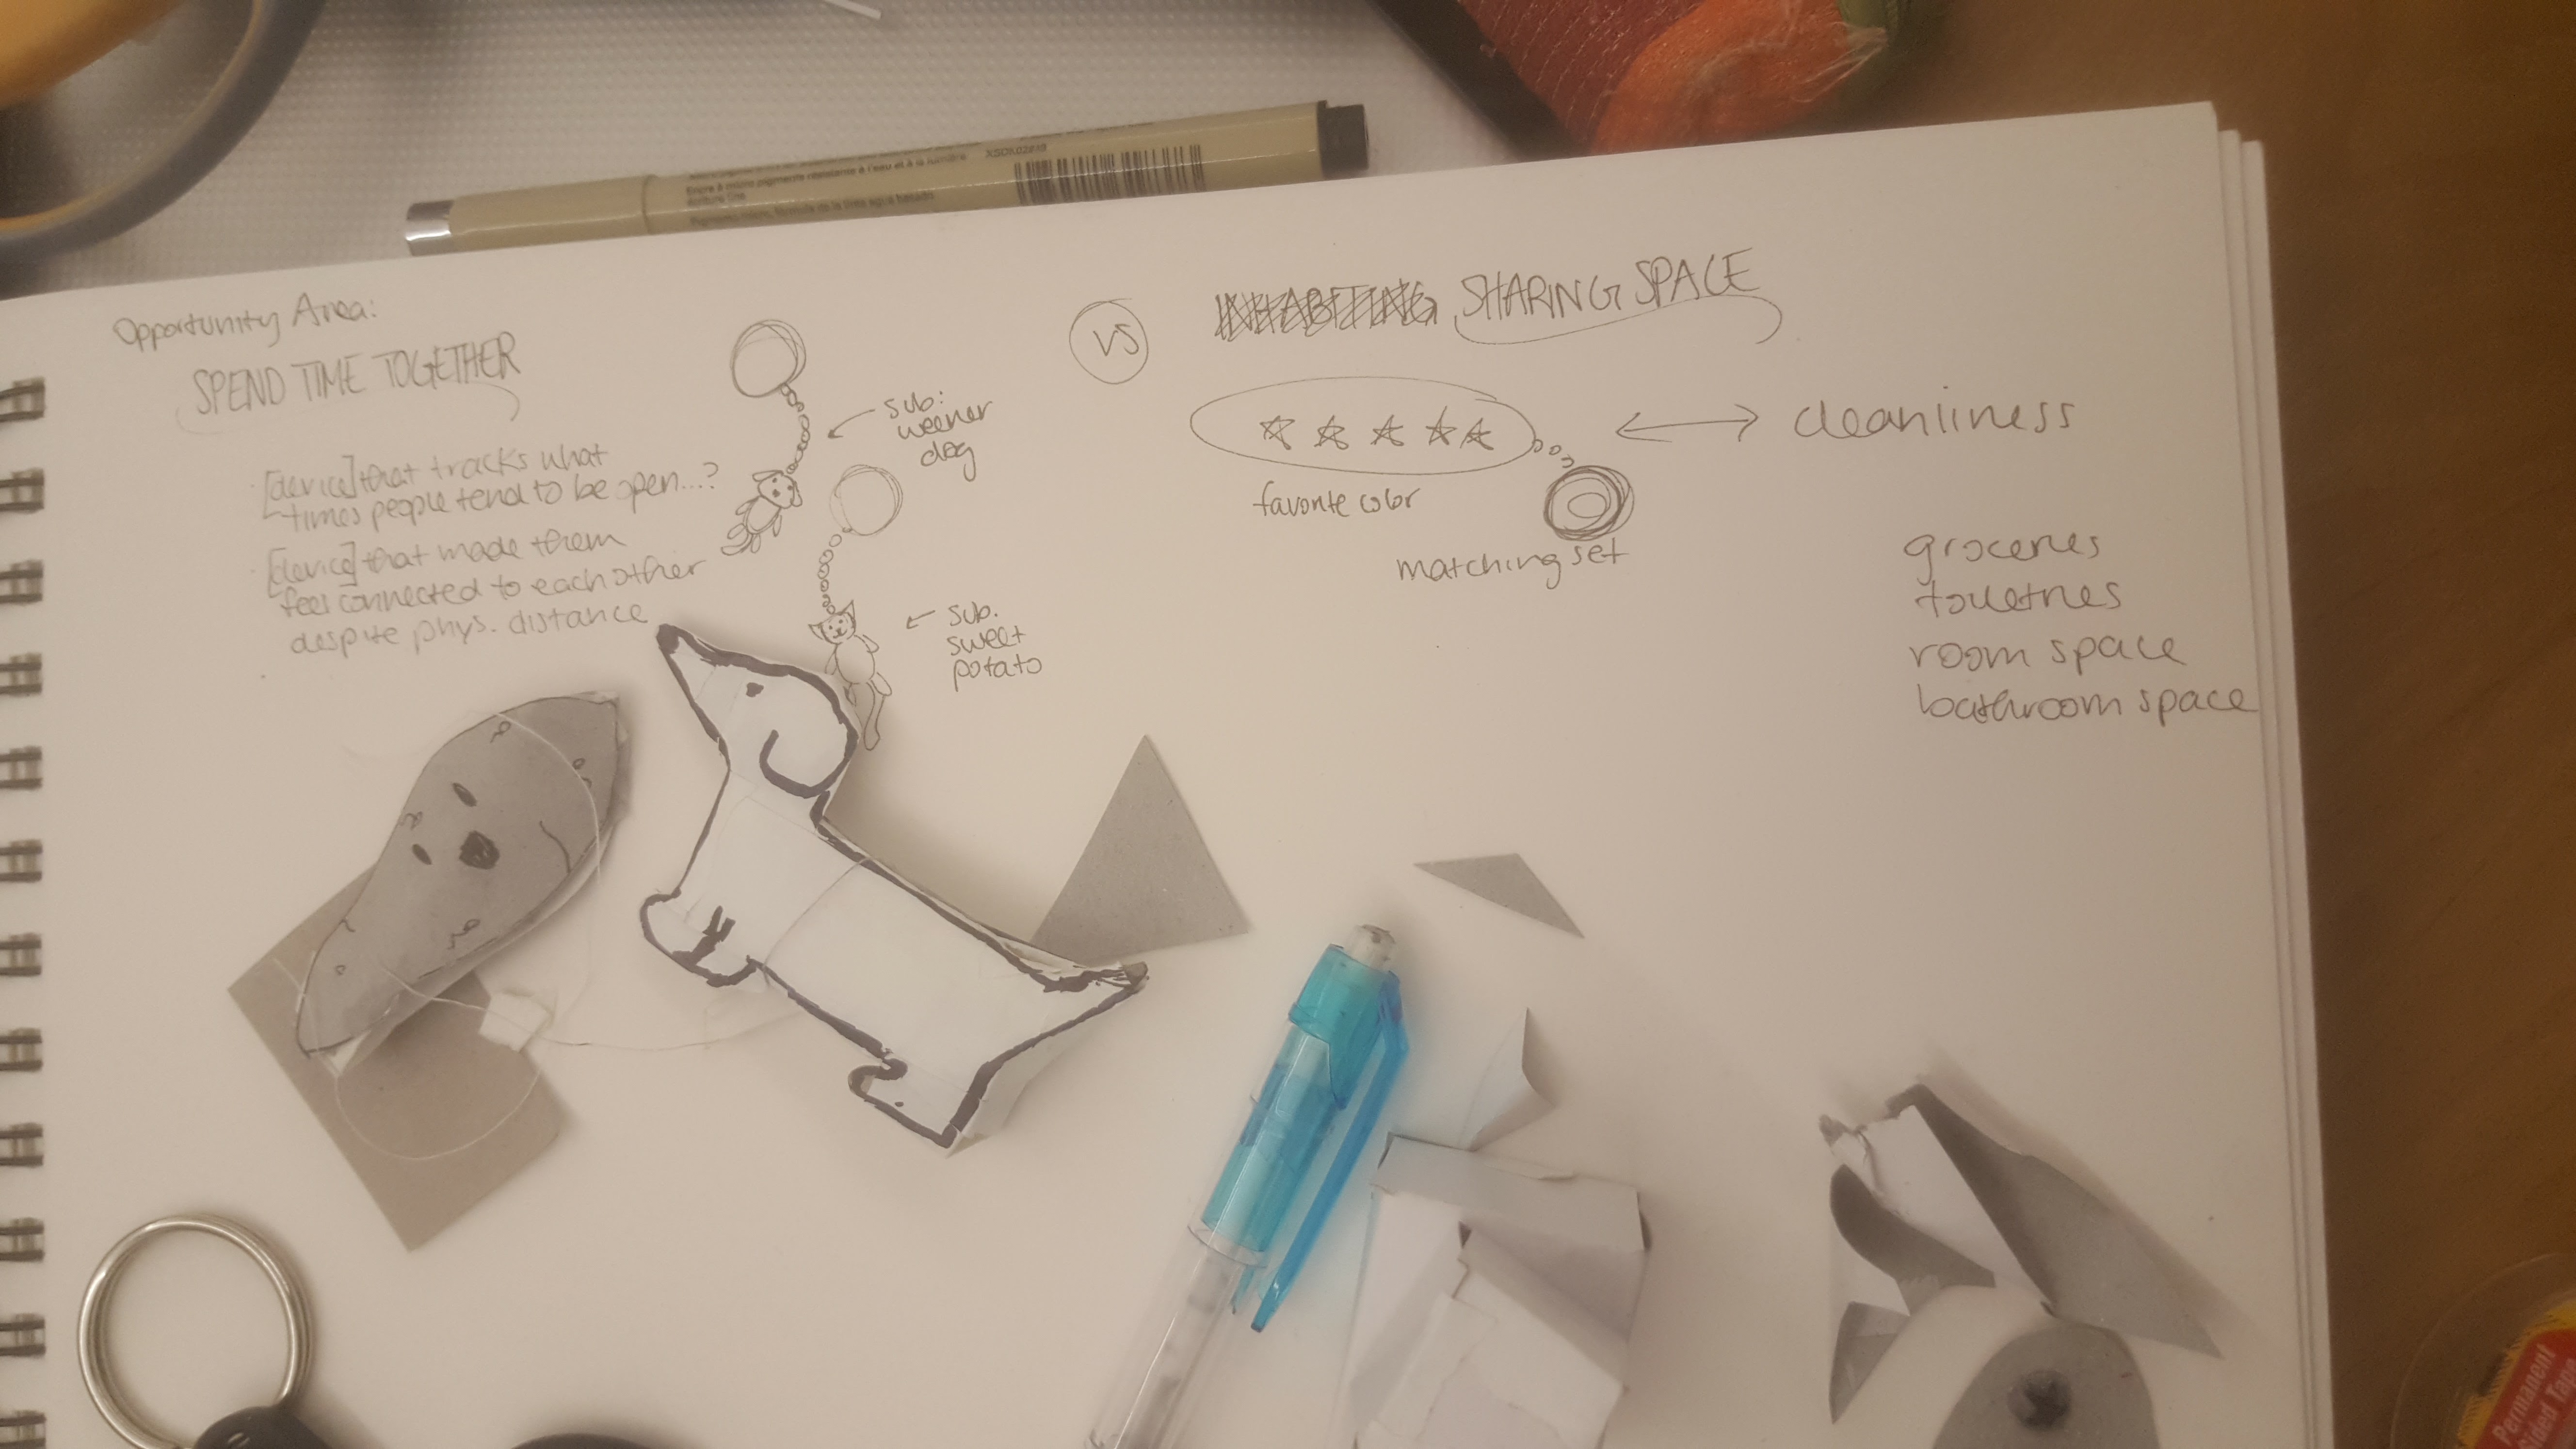 Opportunity Area:
SPEND TIME TOGETHER
· [device] that tracks what
times people tend to be open....?
· [device] that made them
feel connected to each other
despite phys. distance
← sub:
weener
dog
← sub.
sweet
potato
VS
SHARING SPACE
favorite color
matching set
←→ cleanliness
groceries
toiletries
room space
bathroom space
Permanent
Sided Tape